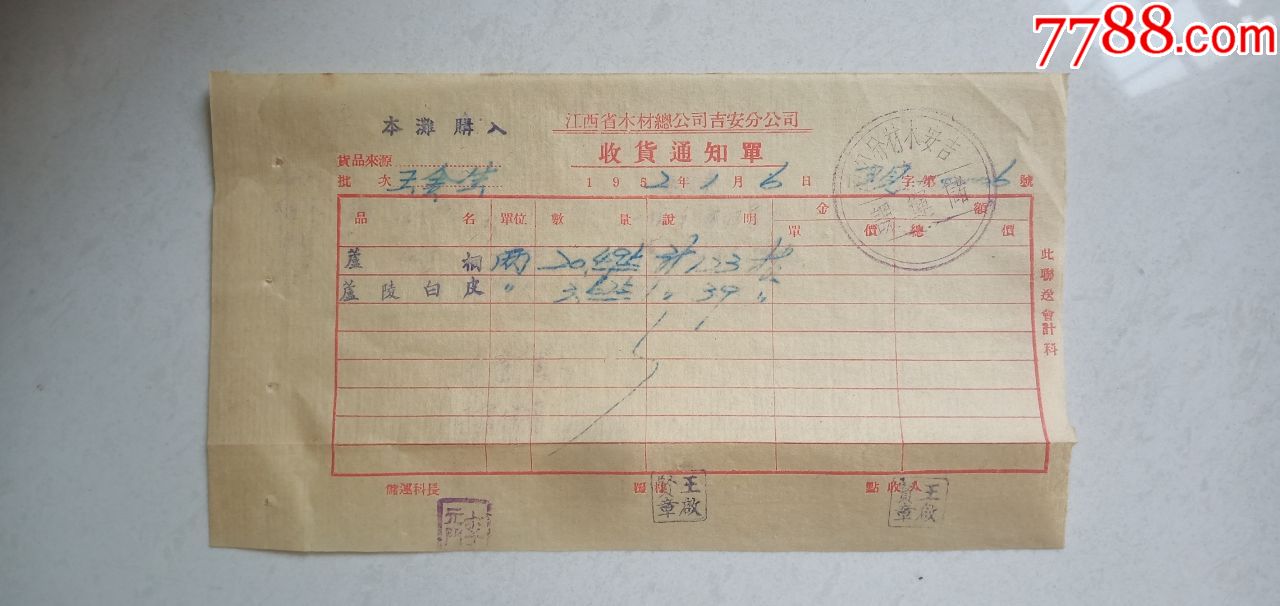 7788.com
本灘購入
江西省木材總公司吉安分公司
收貨通知單
貨品來源
批次
1952年1月6日
字第 6號
品名 單位 數量 說明 金額
單價 總價
蘆桐 兩 20.595 計123株
蘆陵白皮 〃 3.525 〃 39 〃
此聯送會計科
儲運科長
覆核
點收人
王啟賢章
王啟賢章